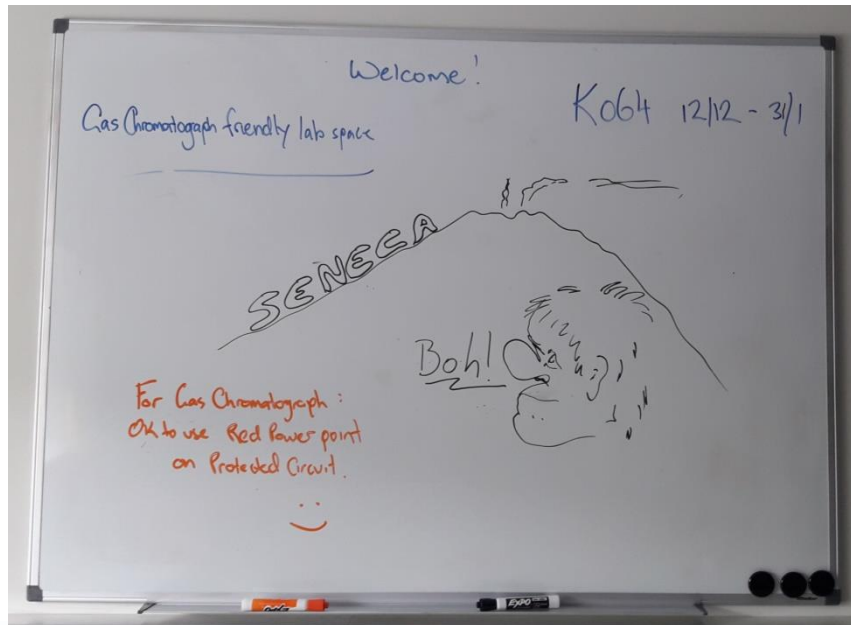 Welcome!
Gas Chromatograph friendly lab space
K064 12/12 - 31/1
SENECA
Boh!
For Gas Chromatograph:
OK to use Red Power point
on Protected Circuit.
EXPO